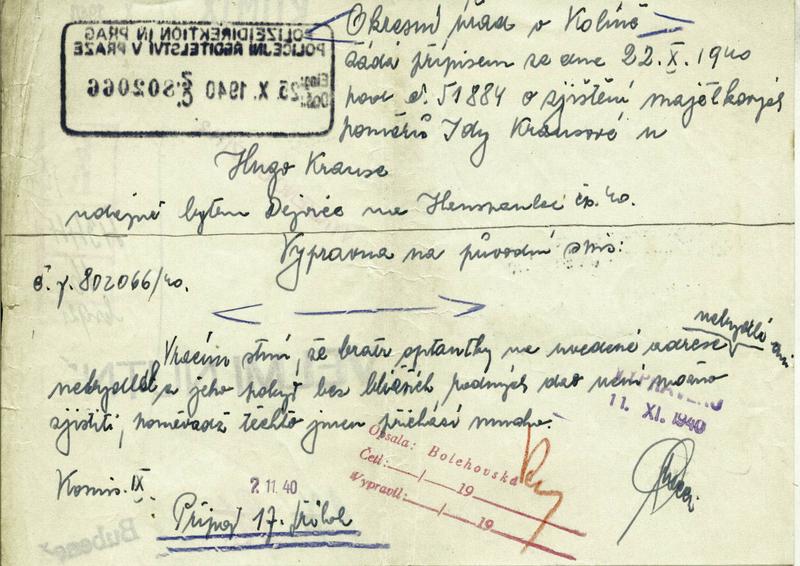 Okresní úřad v Kolíně
žádá přípisem ze dne 22.X.1940
pod č. 51884 o zjištění majetkových
poměrů Idy Krausové u
Hugo Krause
údajně bytem Dejvice na Hanspaulce čp. 40.
POLIZEIDIREKTION IN PRAG
POLICEJNÍ ŘEDITELSTVÍ V PRAZE
Eing.: Došlo: 25. X. 1940 Z. Č. 802066
Vypravna na původní spis:
č. j. 802066/40.
Vracím s tím, že bratr optantky na uvedené adrese
nebydlí ani
nebydlel a jeho pobyt bez bližších rodných dat není možno
zjistiti, poněvadž těchto jmen přichází mnoho.
VYPRAVENO
11. XI. 1940
Opsala: Bolehovská
Četl: / 19
Vypravil: / 19
Komis. IX.
7. 11. 40
Přípoj 17.
Bubeneč